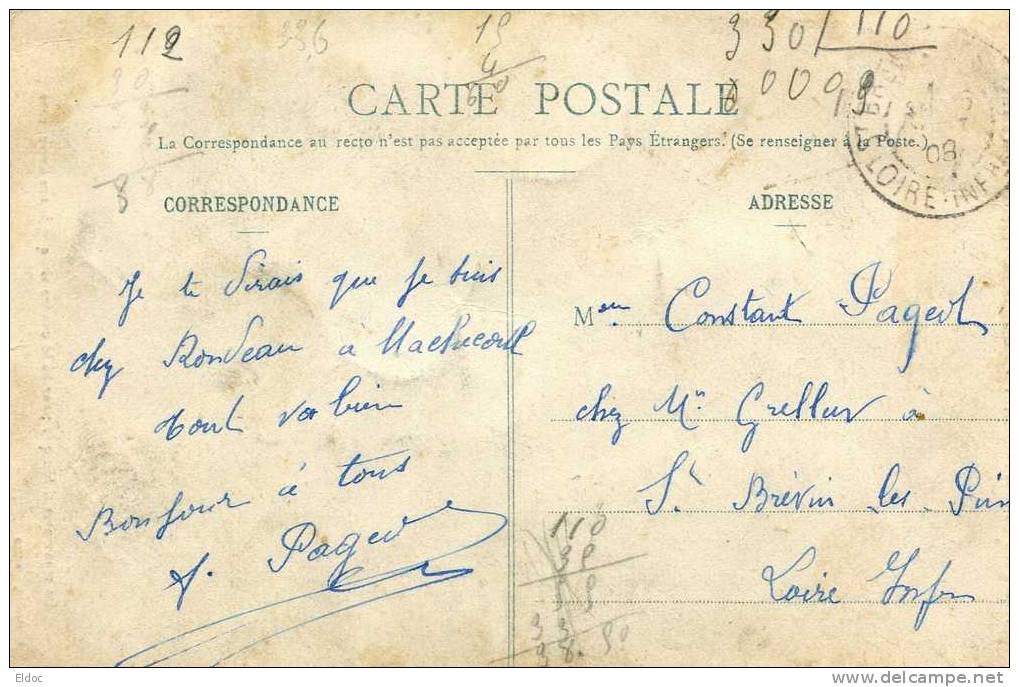 112 336 19 330/110
30 40 0009
CARTE POSTALE
La Correspondance au recto n'est pas acceptée par tous les Pays Étrangers. (Se renseigner à la Poste.)
08
LOIRE-INF
88
CORRESPONDANCE
Je te dirais que je suis
chez Rondeau à Machecoul
tout va bien
Bonjour à tous
Pageot
ADRESSE
Constant Pageot
chez Mr Grellier à
St Brévin les Pin
Loire Infre
110
Eldoc
delcampe.net